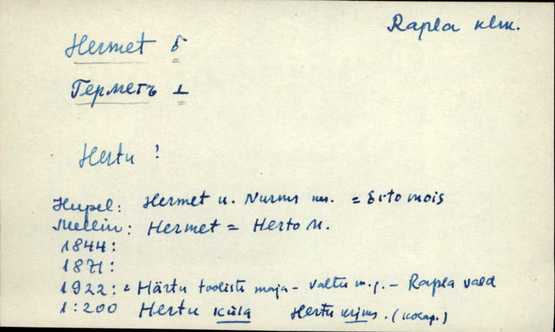 Rapla klm.
Hermet б
Герметъ 1
Hertu !
Hupel: Hermet u. Nurms m. = Erto mois
Mellin: Hermet = Herto M.
1844:
1871:
1922: Härtu tooliste maja - Valtu m.j. - Rapla vald
1:200 Hertu küla Hertu